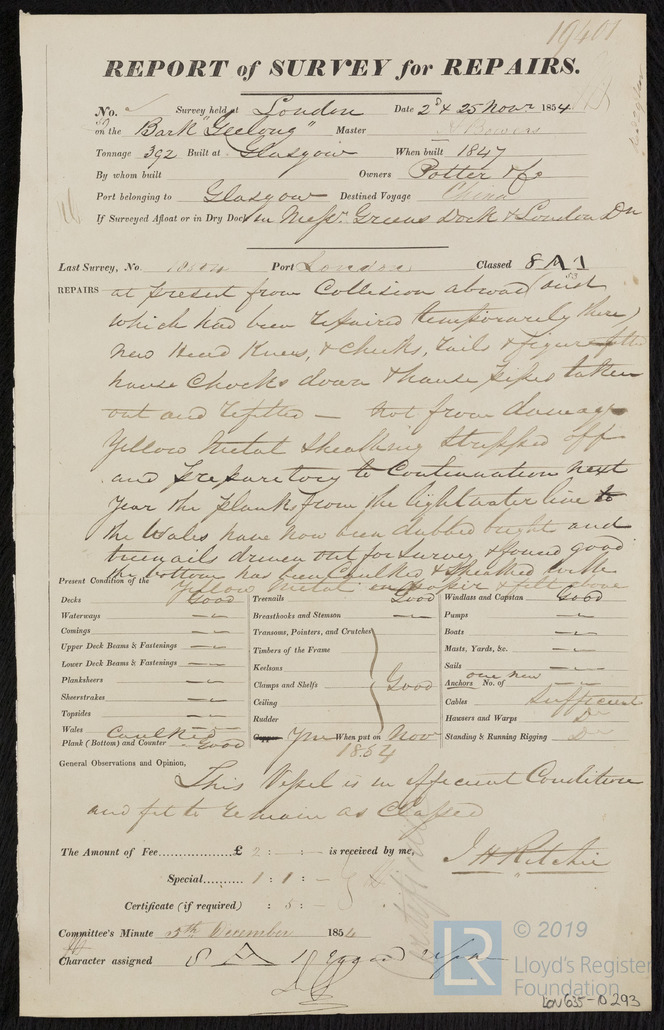 19401
REPORT of SURVEY for REPAIRS.
No. Survey held at London Date 2d & 25 Novr 1854
on the Bark "Geelong" Master Bowers
Tonnage 392 Built at Glasgow When built 1847
By whom built Owners Potter & Co
Port belonging to Glasgow Destined Voyage China
If Surveyed Afloat or in Dry Dock in Messrs Greens Dock & London Dn
Last Survey, No. Port London Classed 8 A 1
53
REPAIRS at present from Collision abroad (and
which had been repaired temporarily there)
new Head Knees, & Cheeks, Rails & figure fitted
hause Chocks down & hause pipes taken
out and refitted — not from damage
Yellow Metal Sheathing stripped off
and preparatory to Continuation next
Year the planks from the light water line to
the Wales have now been dubbed bright and
treenails driven out for survey & found good
the bottom has been Caulked & sheathed with
Yellow Metal on paper & felt above
Present Condition of the
Decks Good Treenails Good Windlass and Capstan Good
Waterways Breasthooks and Stemson Pumps
Comings Transoms, Pointers, and Crutches Boats
Upper Deck Beams & Fastenings Timbers of the Frame Masts, Yards, &c.
Lower Deck Beams & Fastenings Keelsons Sails
Planksheers Clamps and Shelfs Good Anchors No. of one new
Sheerstrakes Ceiling Cables Sufficient
Topsides Rudder Hawsers and Warps Do
Wales Caulked Copper YM When put on Novr 1854 Standing & Running Rigging Do
Plank (Bottom) and Counter Good
General Observations and Opinion,
This Vessel is in efficient Condition
and fit to remain as Classed
The Amount of Fee £ 2 : - : - is received by me,
J H Ritchie
Special 1 : 1 : -
Certificate (if required) : 5 : -
Committee's Minute 5th December 1854
Character assigned 8 A 1
© 2019
LR
Lloyd's Register
Foundation
LON 635-0293